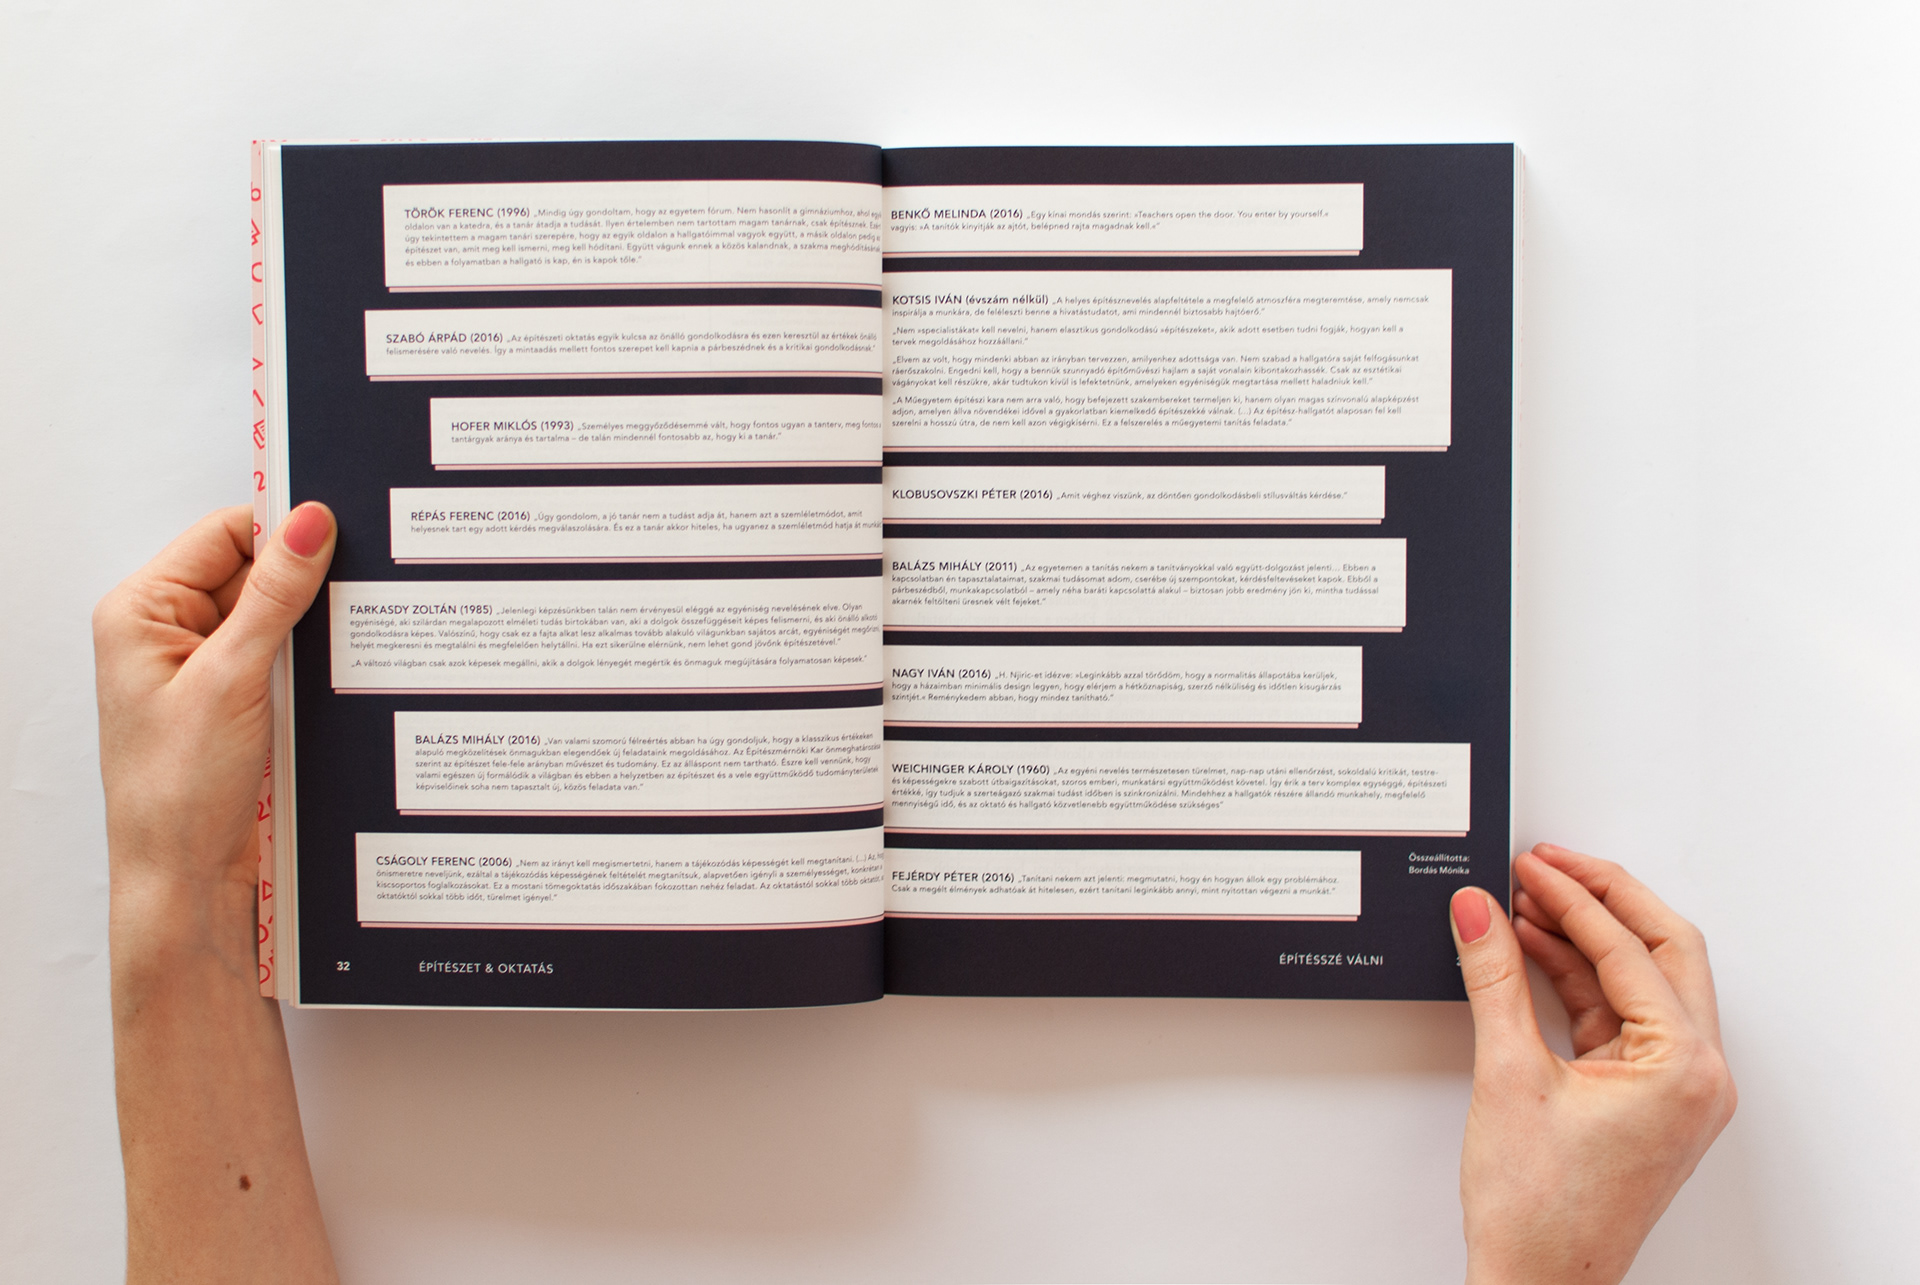 TÖRÖK FERENC (1996) „Mindig úgy gondoltam, hogy az egyetem fórum. Nem hasonlít a gimnáziumhoz, ahol egy
oldalon van a katedra, és a tanár átadja a tudását. Ilyen értelemben nem tartottam magam tanárnak, csak építésznek. Ezért
úgy tekintettem a magam tanári szerepére, hogy az egyik oldalon a hallgatóimmal vagyok együtt, a másik oldalon pedig
építészet van, amit meg kell ismerni, meg kell hódítani. Együtt vágunk ennek a közös kalandnak, a szakma meghódításának
és ebben a folyamatban a hallgató is kap, én is kapok tőle.”
SZABÓ ÁRPÁD (2016) „Az építészeti oktatás egyik kulcsa az önálló gondolkodásra és ezen keresztül az értékek önálló
felismerésére való nevelés. Így a mintaadás mellett fontos szerepet kell kapnia a párbeszédnek és a kritikai gondolkodásnak.”
HOFER MIKLÓS (1993) „Személyes meggyőződésemmé vált, hogy fontos ugyan a tanterv, meg fontos a
tantárgyak aránya és tartalma – de talán mindennél fontosabb az, hogy ki a tanár.”
RÉPÁS FERENC (2016) „Úgy gondolom, a jó tanár nem a tudást adja át, hanem azt a szemléletmódot, amit
helyesnek tart egy adott kérdés megválaszolására. És ez a tanár akkor hiteles, ha ugyanez a szemléletmód hatja át
FARKASDY ZOLTÁN (1985) „Jelenlegi képzésünkben talán nem érvényesül eléggé az egyéniség nevelésének elve. Olyan
egyéniségé, aki szilárdan megalapozott elméleti tudás birtokában van, aki a dolgok összefüggéseit képes felismerni, és aki önálló alkotó
gondolkodásra képes. Valószínű, hogy csak ez a fajta alkat lesz alkalmas tovább alakuló világunkban sajátos arcát, egyéniségét megőrizni,
helyét megkeresni és megtalálni és megfelelően helytállni. Ha ezt sikerülne elérnünk, nem lehet gond jövőnk építészetével.”
„A változó világban csak azok képesek megállni, akik a dolgok lényegét megértik és önmaguk megújítására folyamatosan képesek.”
BALÁZS MIHÁLY (2016) „Van valami szomorú félreértés abban ha úgy gondoljuk, hogy a klasszikus értékeken
alapuló megközelítések önmagukban elegendőek új feladataink megoldásához. Az Építészmérnöki Kar önmeghatározása
szerint az építészet fele-fele arányban művészet és tudomány. Ez az álláspont nem tartható. Észre kell vennünk, hogy
valami egészen új formálódik a világban és ebben a helyzetben az építészet és a vele együttműködő tudományterületek
képviselőinek soha nem tapasztalt új, közös feladata van.”
CSÁGOLY FERENC (2006) „Nem az irányt kell megismertetni, hanem a tájékozódás képességét kell megtanítani. (...) Az,
önismeretre neveljünk, ezáltal a tájékozódás képességének feltételét megtanítsuk, alapvetően igényli a személyességet,
kiscsoportos foglalkozásokat. Ez a mostani tömegoktatás időszakában fokozottan nehéz feladat. Az oktatástól sokkal több
oktatóktól sokkal több időt, türelmet igényel.”
32
ÉPÍTÉSZET & OKTATÁS
BENKŐ MELINDA (2016) „Egy kínai mondás szerint: »Teachers open the door. You enter by yourself.«
vagyis: »A tanítók kinyitják az ajtót, belépned rajta magadnak kell.«”
KOTSIS IVÁN (évszám nélkül) „A helyes építésznevelés alapfeltétele a megfelelő atmoszféra megteremtése, amely nemcsak
inspirálja a munkára, de feléleszti benne a hivatástudatot, ami mindennél biztosabb hajtóerő.”
„Nem »specialistákat« kell nevelni, hanem elasztikus gondolkodású »építészeket«, akik adott esetben tudni fogják, hogyan kell a
tervek megoldásához hozzáállani.”
„Elvem az volt, hogy mindenki abban az irányban tervezzen, amilyenhez adottsága van. Nem szabad a hallgatóra saját felfogásunkat
ráerőszakolni. Engedni kell, hogy a bennük szunnyadó építőművészi hajlam a saját vonalain kibontakozhassék. Csak az esztétikai
vágányokat kell részükre, akár tudtukon kívül is lefektetnünk, amelyeken egyéniségük megtartása mellett haladniuk kell.”
„A Műegyetem építészi kara nem arra való, hogy befejezett szakembereket termeljen ki, hanem olyan magas színvonalú alapképzést
adjon, amelyen állva növendékei idővel a gyakorlatban kiemelkedő építészekké válnak. (...) Az építész-hallgatót alaposan fel kell
szerelni a hosszú útra, de nem kell azon végigkísérni. Ez a felszerelés a műegyetemi tanítás feladata.”
KLOBUSOVSZKI PÉTER (2016) „Amit véghez viszünk, az döntően gondolkodásbeli stílusváltás kérdése.”
BALÁZS MIHÁLY (2011) „Az egyetemen a tanítás nekem a tanítványokkal való együtt-dolgozást jelenti... Ebben a
kapcsolatban én tapasztalataimat, szakmai tudásomat adom, cserébe új szempontokat, kérdésfeltevéseket kapok. Ebből a
párbeszédből, munkakapcsolatból – amely néha baráti kapcsolattá alakul – biztosan jobb eredmény jön ki, mintha tudással
akarnék feltölteni üresnek vélt fejeket.”
NAGY IVÁN (2016) „H. Njiric-et idézve: »Leginkább azzal törődöm, hogy a normalitás állapotába kerüljek,
hogy a házaimban minimális design legyen, hogy elérjem a hétköznapiság, szerző nélküliség és időtlen kisugárzás
szintjét.« Reménykedem abban, hogy mindez tanítható.”
WEICHINGER KÁROLY (1960) „Az egyéni nevelés természetesen türelmet, nap-nap utáni ellenőrzést, sokoldalú kritikát, testre-
és képességekre szabott útbaigazításokat, szoros emberi, munkatársi együttműködést követel. Így érik a terv komplex egységgé, építészeti
értékké, így tudjuk a szerteágazó szakmai tudást időben is szinkronizálni. Mindehhez a hallgatók részére állandó munkahely, megfelelő
mennyiségű idő, és az oktató és hallgató közvetlenebb együttműködése szükséges”
FEJÉRDY PÉTER (2016) „Tanítani nekem azt jelenti: megmutatni, hogy én hogyan állok egy problémához.
Csak a megélt élmények adhatóak át hitelesen, ezért tanítani leginkább annyi, mint nyitottan végezni a munkát.”
Összeállította:
Bordás Mónika
ÉPÍTÉSSZÉ VÁLNI